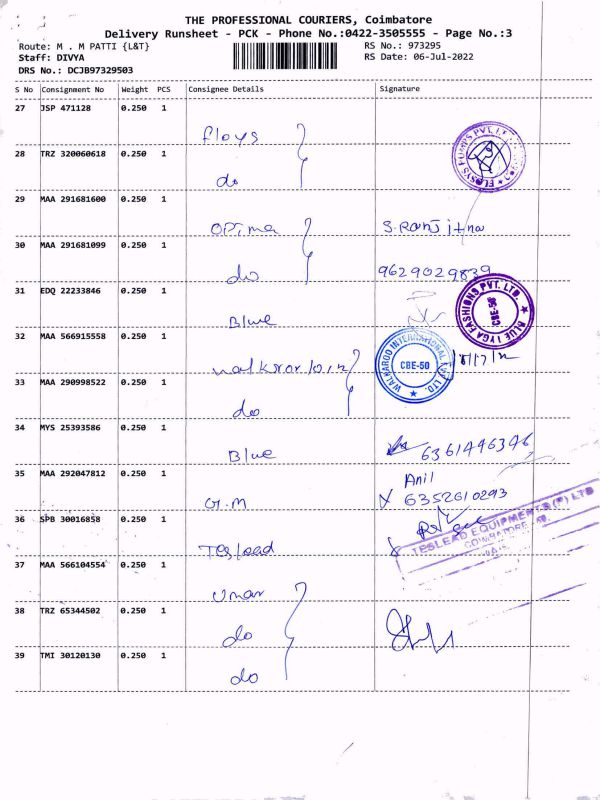 THE PROFESSIONAL COURIERS, Coimbatore
Delivery Runsheet - PCK - Phone No.:0422-3505555 - Page No.:3
Route: M . M PATTI {L&T} RS No.: 973295
Staff: DIVYA RS Date: 06-Jul-2022
DRS No.: DCJB97329503
S No Consignment No Weight PCS Consignee Details Signature
27 JSP 471128 0.250 1
floys
28 TRZ 320060618 0.250 1
do
FLOSYS PUMPS PVT. LTD
29 MAA 291681600 0.250 1
OPTima S.Ranjitha
30 MAA 291681099 0.250 1
do 9629029839
31 EDQ 22233846 0.250 1
Blue
BLUE LYGA FASHIONS PVT. LTD. CBE-50
32 MAA 566915558 0.250 1
WALKAROO INTERNATIONAL PVT. LTD. CBE-50
33 MAA 290998522 0.250 1
do
34 MYS 25393586 0.250 1
Blue 6361496346
35 MAA 292047812 0.250 1
Anil
G.M 6352610293
36 SPB 30016858 0.250 1
Tesload
TESLEAD EQUIPMENTS (P) LTD
COIMBATORE
37 MAA 566104554 0.250 1
Umar
38 TRZ 65344502 0.250 1
do
39 TMI 30120130 0.250 1
do